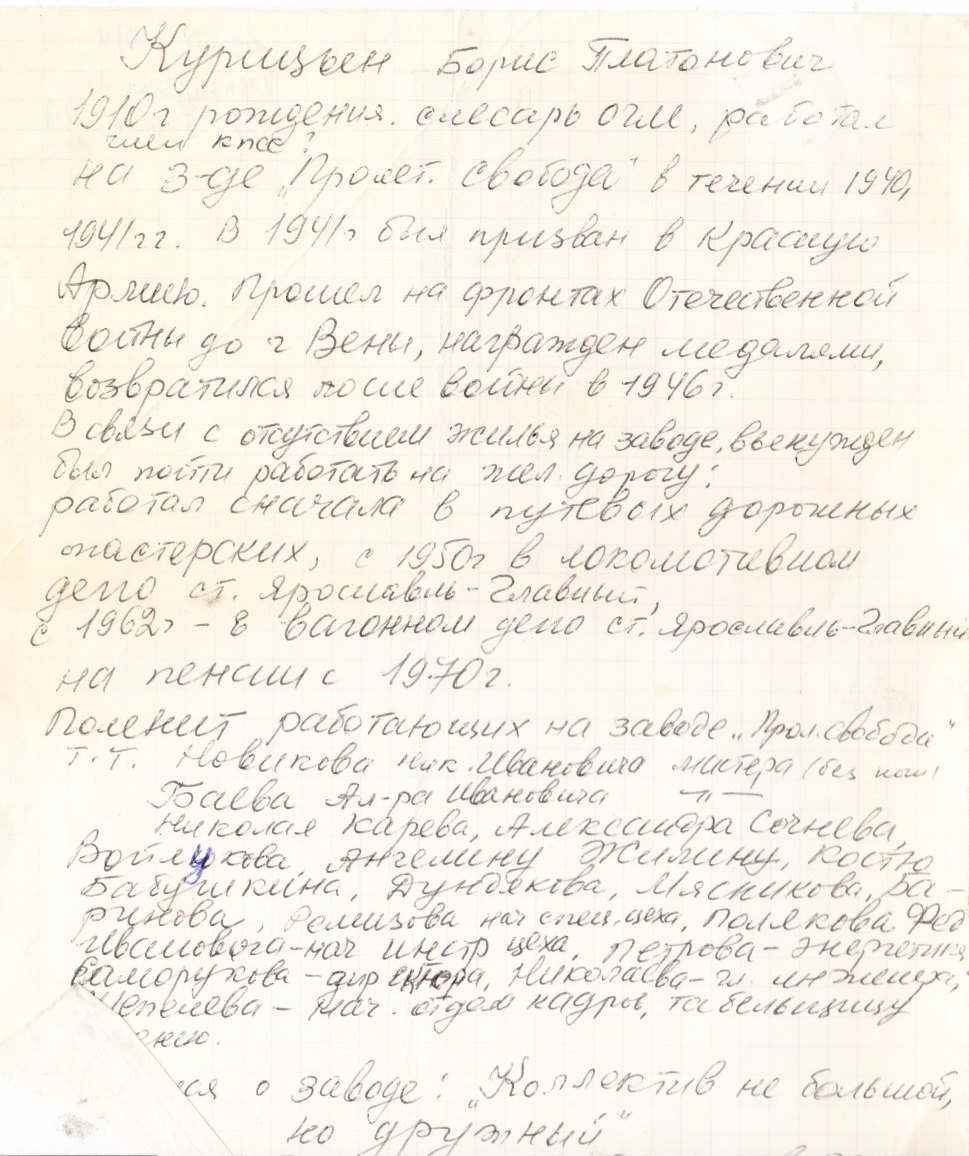 Курицын Борис Платонович
1910г рождения. слесарь ОГМ, работал
член КПСС?
на з-де „Пролет. свобода" в течении 1940,
1941гг. В 1941г был призван в Красную
Армию. Прошел на фронтах Отечественной
войны до г Вены, награжден медалями,
возвратился после войны в 1946г.
В связи с отсутствием жилья на заводе, вынужден
был пойти работать на жел. дорогу:
работал сначала в путевых дорожных
мастерских, с 1950г в локомотивном
депо ст. Ярославль-Главный,
с 1962г - в вагонном депо ст. Ярославль-Главный
на пенсии с 1970г.
Помнит работающих на заводе „Прол. свобода"
т.т. Новикова Ник. Ивановича мастера (без
Баева Ал-ра Ивановича —"—
Николая Карева, Александра Сочнева,
Войлукова, Ангелину Жилину, Костю
Бабушкина, Дундукова, Мясникова, Ба-
ринова, Ремизова нач спец. цеха, Полякова Фед
Ивановича-нач инстр цеха, Петрова-энергетика,
Саморукова-директора, Николаева-гл. инженера,
Шепелева-нач. отдела кадров, табельщицу
о заводе: „Коллектив не большой,
но дружный"